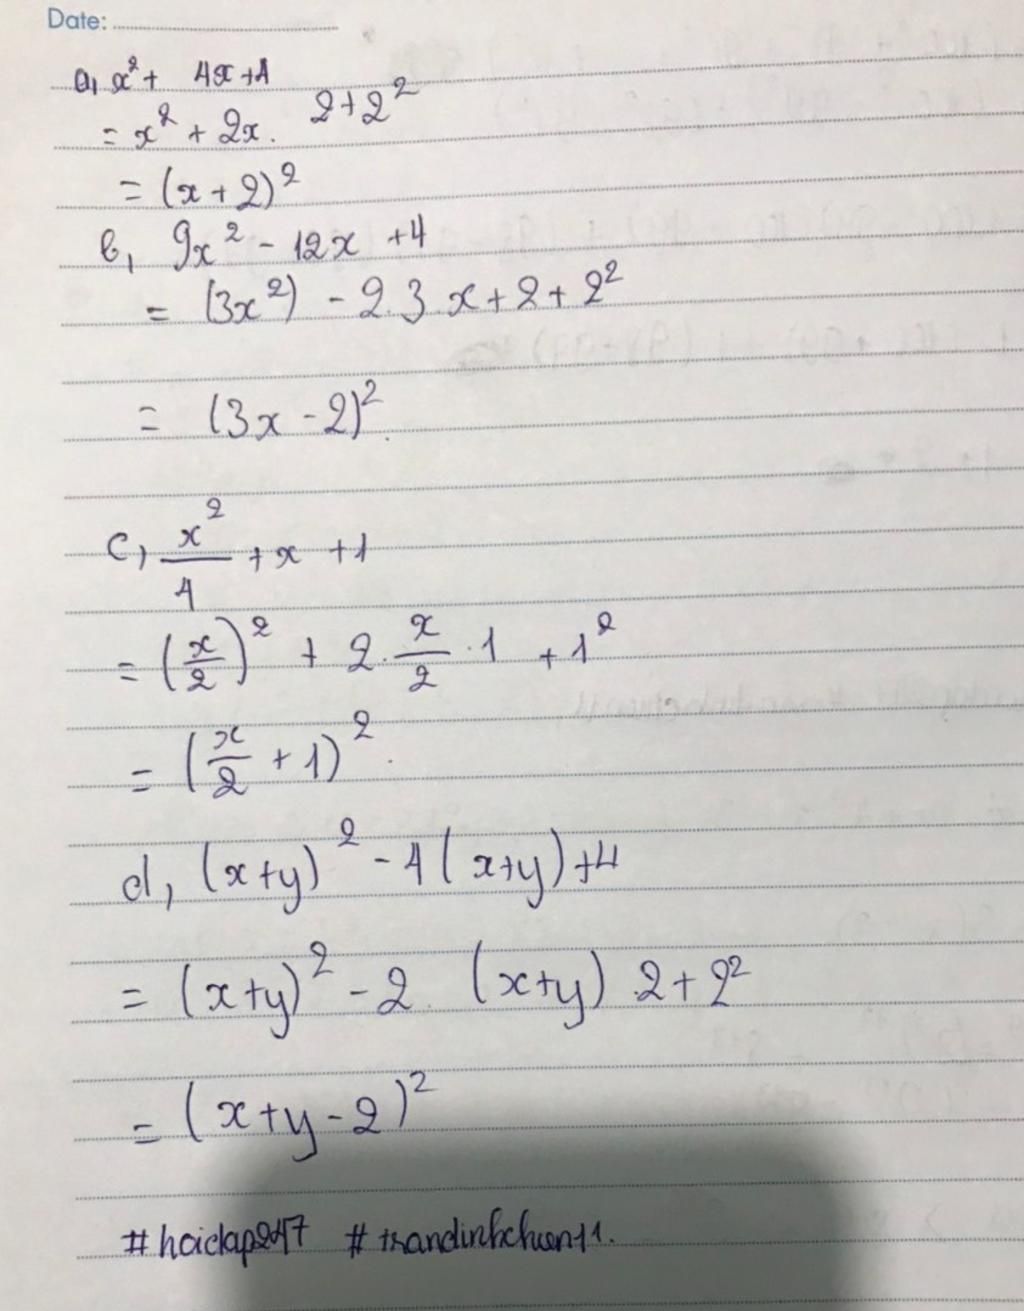 Date:
a, x² + 4x + 4
= x² + 2x. 2 + 2²
= (x + 2)²
b, 9x² - 12x + 4
= (3x²) - 2.3.x + 2 + 2²
= (3x - 2)²
c, x²/4 + x + 1
= (x/2)² + 2. x/2 . 1 + 1²
= (x/2 + 1)².
d, (x+y)² - 4(x+y) + 4
= (x+y)² - 2. (x+y) .2 + 2²
= (x+y-2)²
#hoidap247 #trandinhchien11.